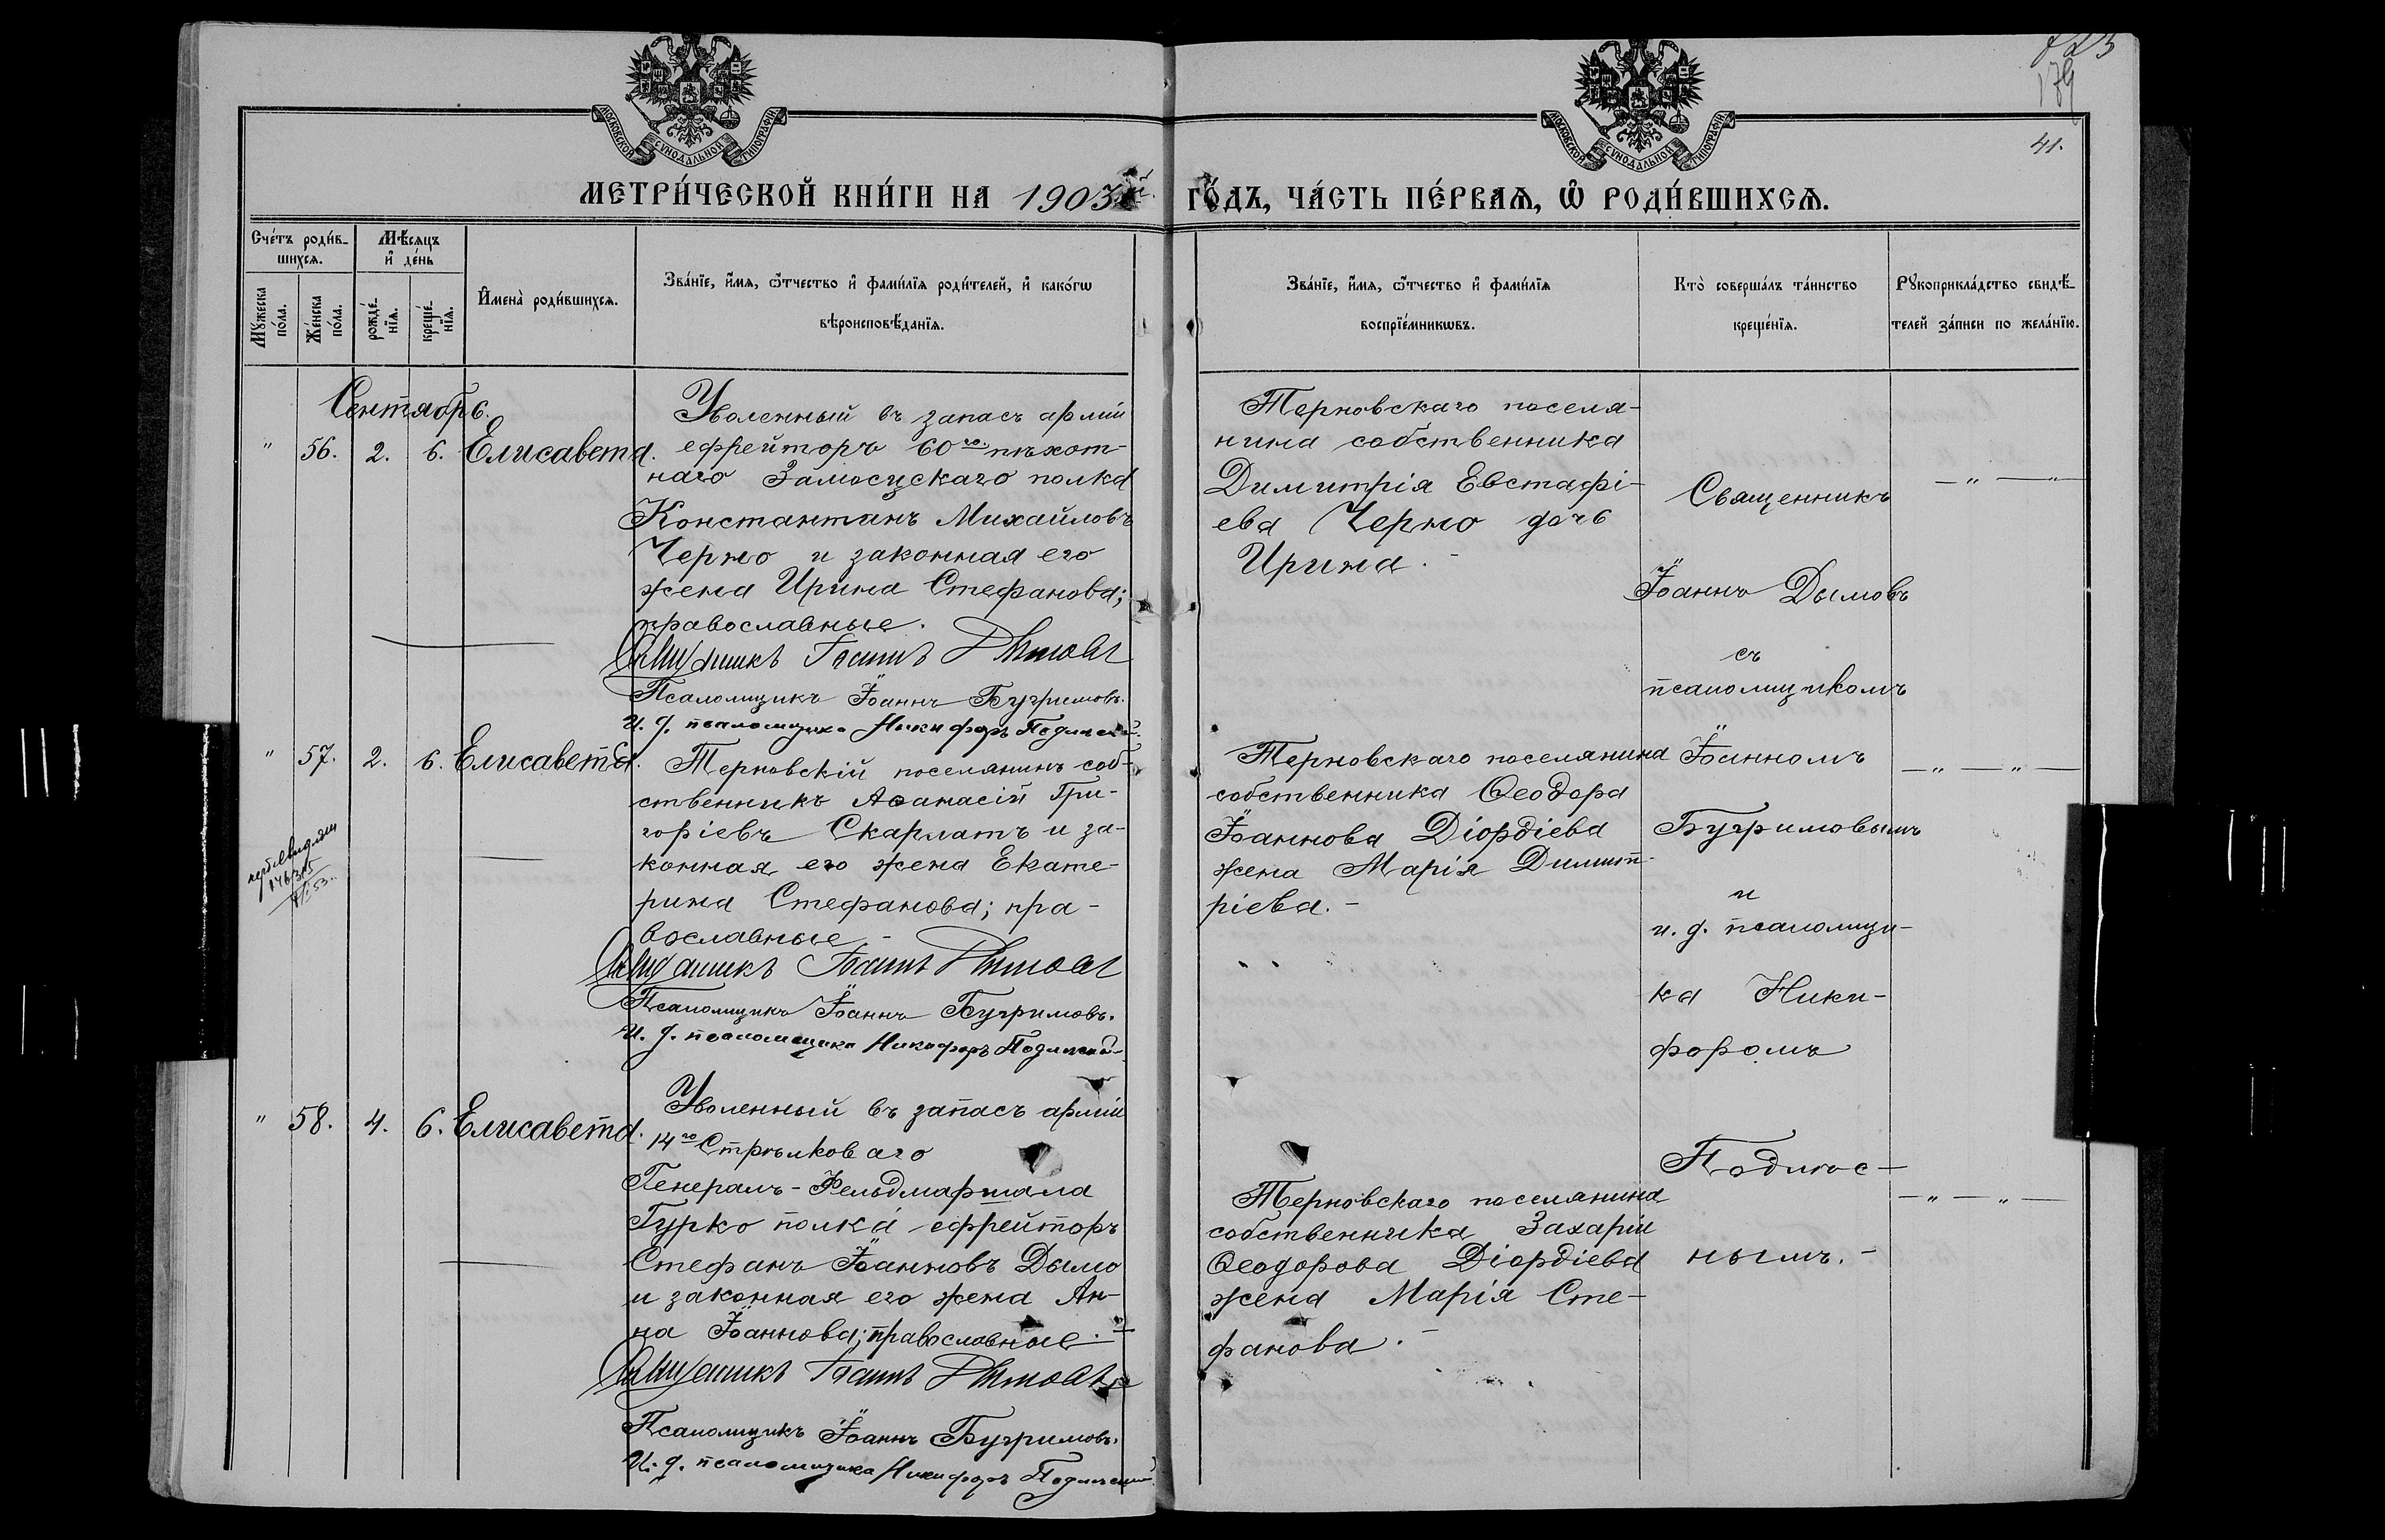 МОСКОВСКОЙ СѴНОДАЛЬНОЙ ТИПОГРАФІИ
МОСКОВСКОЙ СѴНОДАЛЬНОЙ ТИПОГРАФІИ
179
41.
МЕТРИ́ЧЕСКОЙ КНИ́ГИ НА 1903й ГО́ДЪ, ЧА́СТЬ ПЕ́РВАѦ, Ѽ РОДИ́ВШИХСѦ.
Сче́тъ роди́в-
шихсѧ.
Мꙋ́жеска
по́ла.
Же́нска
по́ла.
Мѣ́сѧцъ
и҆ де́нь
рожде́-
нїѧ.
креще́-
нїѧ.
И҆мена̀ роди́вшихсѧ.
Зва́нїе, и҆́мѧ, ѻ҆́тчество и҆ фами́лїѧ роди́телей, и҆ како́гѡ
вѣроисповѣ́данїѧ.
Зва́нїе, и҆́мѧ, ѻ҆́тчество и҆ фами́лїѧ
воспрїе́мникѡвъ.
Кто̀ соверша́лъ та́инство
креще́нїѧ.
Рꙋкоприкла́дство свидѣ́-
телей за́писи по жела́нїю.
Сентябрь.
" 56. 2. 6. Елисавета.
Уволенный въ запасъ арміи
ефрейторъ 60го пѣхот-
наго Замосцскаго полка
Константинъ Михайловъ
Черно и законная его
жена Ирина Стефанова;
православные.
Священникъ Іоаннъ Дымовъ
Псаломщикъ Іоаннъ Бугримовъ.
И. д. псаломщика Никифоръ
Терновскаго поселя-
нина собственника
Димитрія Евстафі-
ева Черно дочь
Ирина.-
Священникъ
Іоаннъ Дымовъ
съ
псаломщикомъ
Іоанномъ
Бугримовымъ
и
и. д. псаломщи-
ка Ники-
форомъ
Подлюс-
нымъ.-
— " — " —
" 57. 2. 6. Елисавета.
Терновскій поселянинъ соб-
ственникъ Аѳанасій Гри-
горіевъ Скарлатъ и за-
конная его жена Екате-
рина Стефанова; пра-
вославные-
Священникъ Іоаннъ Дымовъ
Псаломщикъ Іоаннъ Бугримовъ.
И. д. псаломщика Никифоръ
Терновскаго поселянина
собственника Ѳеодора
Іоаннова Діордіева
жена Марія Димит-
ріева.-
— " — " —
" 58. 4. 6. Елисавета.
Уволенный въ запасъ арміи
14го Стрѣлковаго
Генералъ-Фельдмаршала
Гурко полка ефрейторъ
Стефанъ Іоанновъ Дымо
и законная его жена Ан-
на Іоаннова; православные.-
Священникъ Іоаннъ Дымовъ
Псаломщикъ Іоаннъ Бугримовъ.
И. д. псаломщика Никифоръ
Терновскаго поселянина
собственника Захаріи
Ѳеодорова Діордіева
жена Марія Сте-
фанова.-
— " — " —